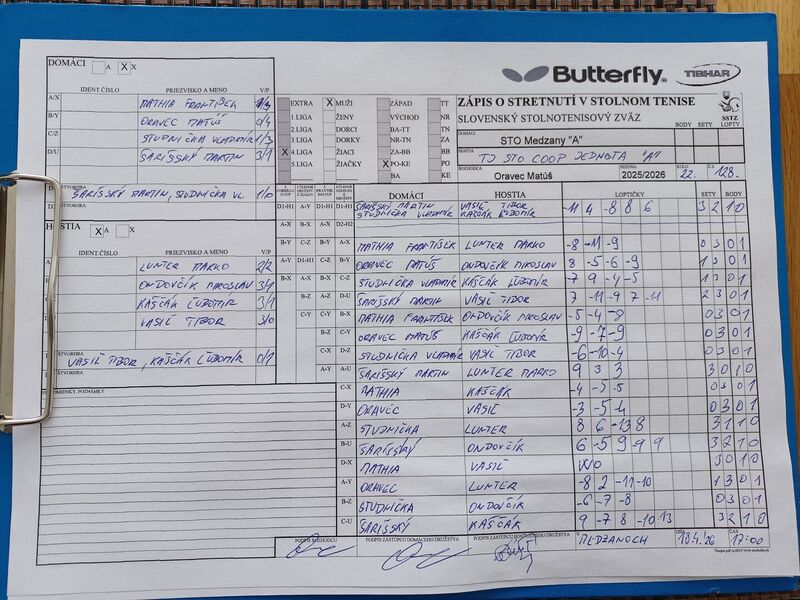 DOMÁCI A X X
IDENT.ČÍSLO PRIEZVISKO A MENO V/P
A/X MATHIA FRANTIŠEK
B/Y ORAVEC MATÚŠ 0/4
C/Z STUDNIČKA VLADIMÍR 1/3
D/U ŠARIŠSKÝ MARTIN 3/1
ŠARIŠSKÝ MARTIN, STUDNIČKA VL. 1/0
HOSTIA X A X
IDENT.ČÍSLO PRIEZVISKO A MENO V/P
LUNTER MARKO 2/2
ONDOVČÍK MIROSLAV 3/1
KAŠČÁK ĽUBOMÍR 3/1
VASIĽ TIBOR 3/0
VASIĽ TIBOR, KAŠČÁK ĽUBOMÍR 0/1
POZNÁMKY
EXTRA X MUŽI ZÁPAD TT
1 LIGA ŽENY VÝCHOD NR
2 LIGA DORCI BA-TT TN
3 LIGA DORKY NR-TN ZA
X 4 LIGA ŽIACI ZA-BB BB
5 LIGA ŽIAČKY X PO-KE PO
BA KE
Butterfly
TIBHAR
ZÁPIS O STRETNUTÍ V STOLNOM TENISE
SLOVENSKÝ STOLNOTENISOVÝ ZVÄZ
SSTZ
BODY SETY LOPTY
DOMÁCI
STO Medzany "A"
HOSTIA
TJ STO COOP JEDNOTA "A"
ROZHODCA SEZÓNA KOLO Č.
Oravec Matúš 2025/2026 22. 128.
DOMÁCI HOSTIA LOPTIČKY SETY BODY
D1-H1 A-Y D1-H1 D1-H1 ŠARIŠSKÝ MARTIN VASIĽ TIBOR -11 4 -8 8 6 3 2 1 0
STUDNIČKA VLADIMÍR KAŠČÁK ĽUBOMÍR
A-X B-X A-X D2-H2
B-Y C-Z B-Y A-X MATHIA FRANTIŠEK LUNTER MARKO -8 -11 -9 0 3 0 1
A-Y ORAVEC MATÚŠ ONDOVČÍK MIROSLAV 8 -5 -6 -9 1 3 0 1
B-X A-X B-X C-Z STUDNIČKA VLADIMÍR KAŠČÁK ĽUBOMÍR 7 9 -4 -5
B-Z A-Z D-U ŠARIŠSKÝ MARTIN VASIĽ TIBOR 7 -11 -9 7 -11 2 3 0 1
C-Y C-Y B-X MATHIA FRANTIŠEK ONDOVČÍK MIROSLAV -5 -4 -8 0 3 0 1
B-Z C-Y ORAVEC MATÚŠ KAŠČÁK ĽUBOMÍR -9 -7 -9 0 3 0 1
C-X D-Z STUDNIČKA VLADIMÍR VASIĽ TIBOR -6 -10 -4 0 3 0 1
A-Y A-U ŠARIŠSKÝ MARTIN LUNTER MARKO 9 3 3 3 0 1 0
C-X MATHIA KAŠČÁK -4 -5 -5 0 3 0 1
D-Y ORAVEC VASIĽ -3 -5 -4 0 3 0 1
A-Z STUDNIČKA LUNTER 8 6 -13 8 3 1 1 0
B-U ŠARIŠSKÝ ONDOVČÍK 6 -5 9 -9 9 3 2 1 0
D-X MATHIA VASIĽ WO 3 0 1 0
A-Y ORAVEC LUNTER -8 2 -11 -10 1 3 0 1
B-Z STUDNIČKA ONDOVČÍK -6 -7 -8 0 3 0 1
C-U ŠARIŠSKÝ KAŠČÁK 9 -7 8 -10 13 3 2 1 0
PODPIS ROZHODCU PODPIS ZÁSTUPCU DOMÁCEHO DRUŽSTVA PODPIS ZÁSTUPCU HOSŤUJÚCEHO DRUŽSTVA V MEDZANOCH DŇA 18.4.26 ČAS 17:00